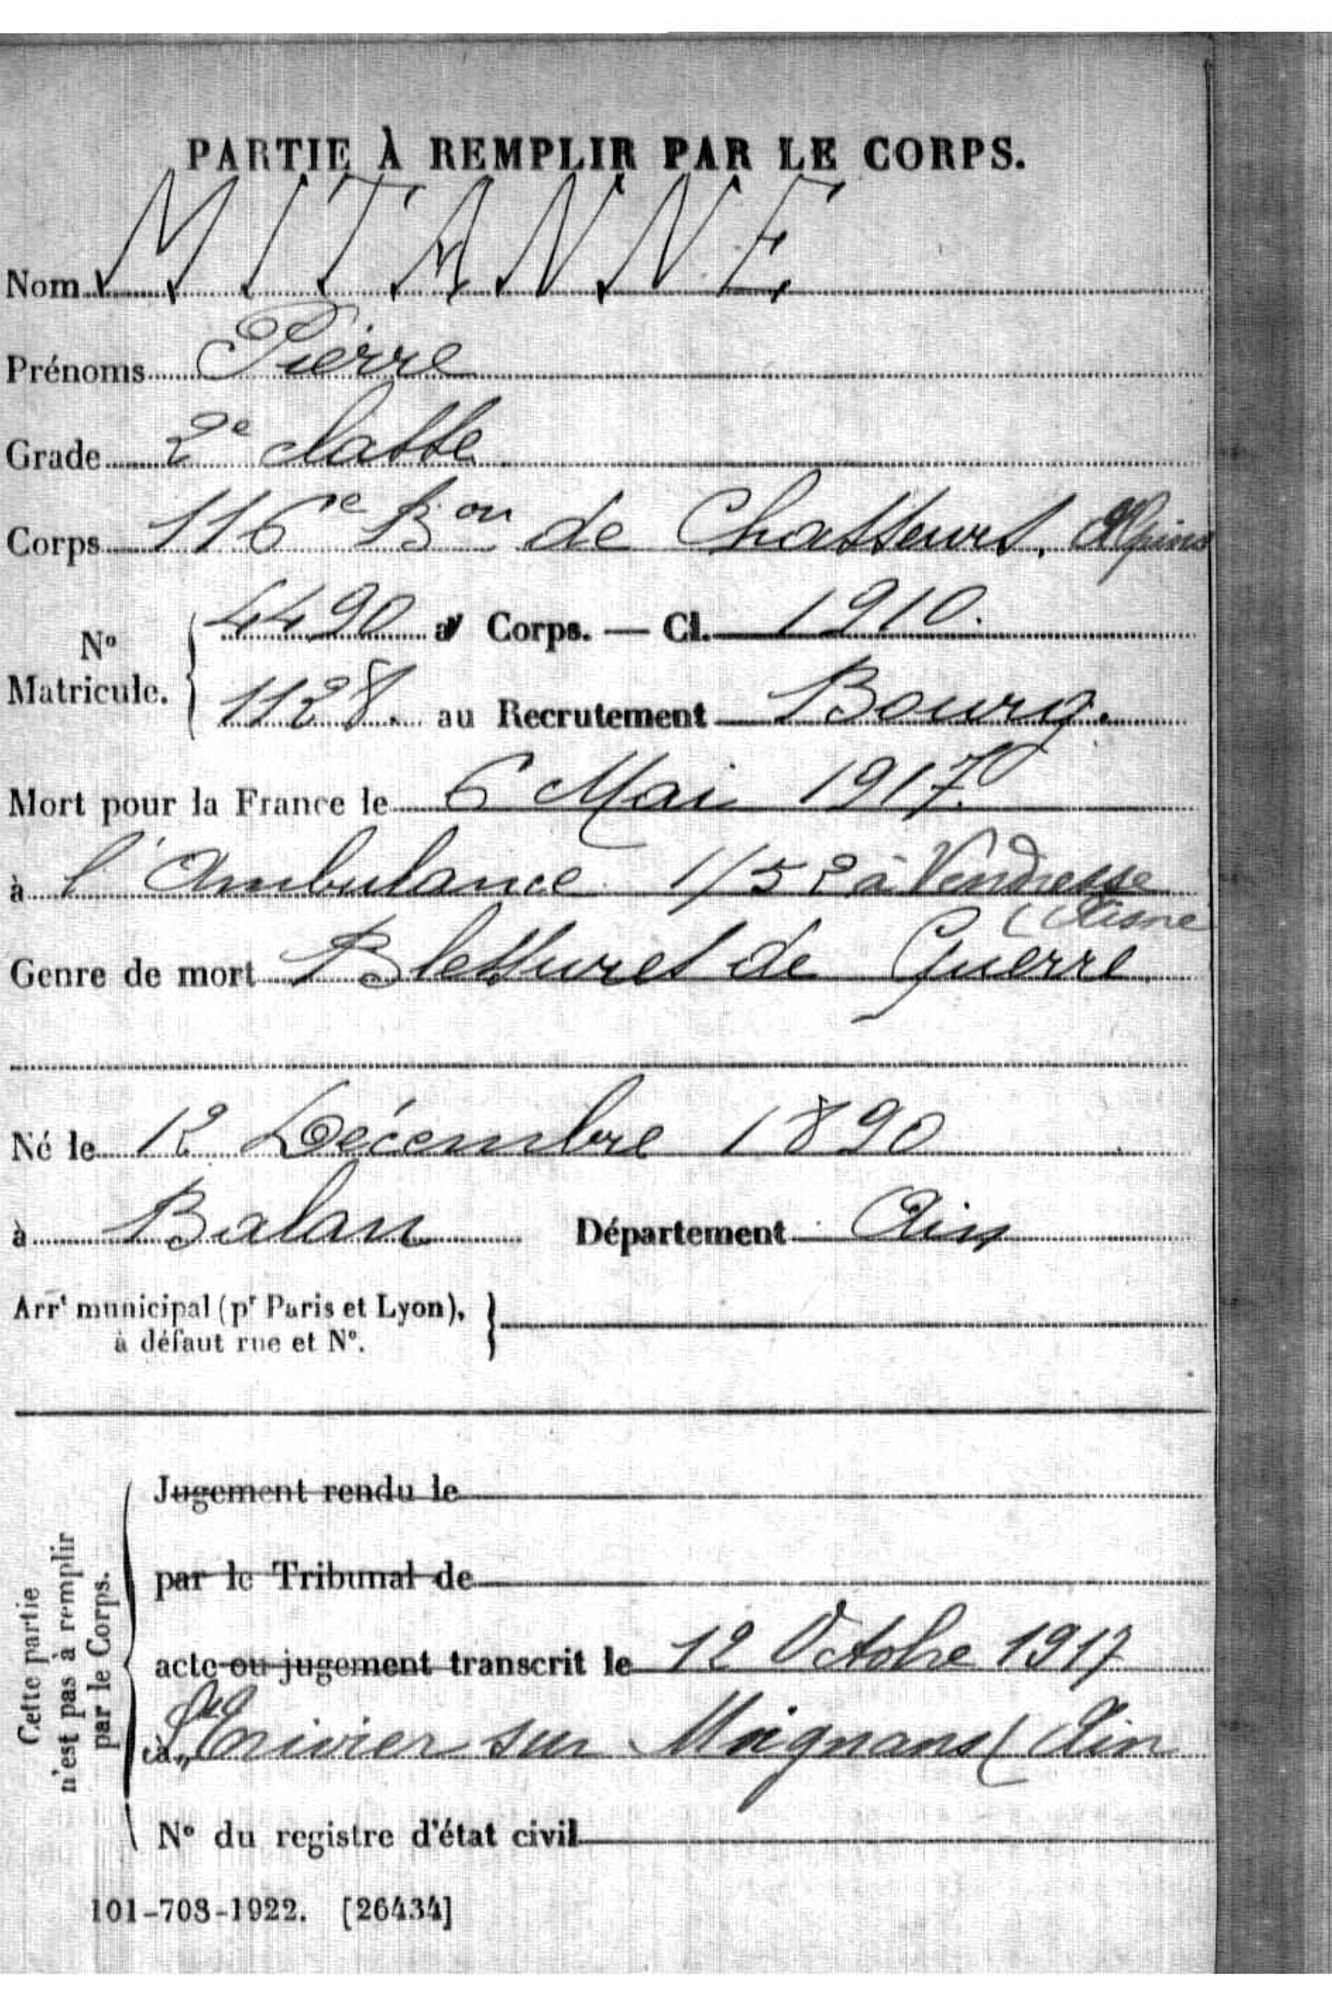 PARTIE À REMPLIR PAR LE CORPS.
Nom MITANNE
Prénoms Pierre
Grade 2e classe
Corps 116e Bon de Chasseurs. Alpins
No Matricule. { 4490 au Corps. — Cl. 1910.
1128. au Recrutement Bourg.
Mort pour la France le 6 Mai 1917.
à l'Ambulance 1/52 à Vendresse
(Aisne
Genre de mort Blessures de Guerre
Né le 12 Décembre 1890
à Balan Département Ain
Arrt municipal (pr Paris et Lyon),
à défaut rue et No.
Cette partie
n'est pas à remplir
par le Corps.
Jugement rendu le
par le Tribunal de
acte ou jugement transcrit le 12 Octobre 1917
à St Trivier sur Moignans (Ain
No du registre d'état civil
101-708-1922. [26434]